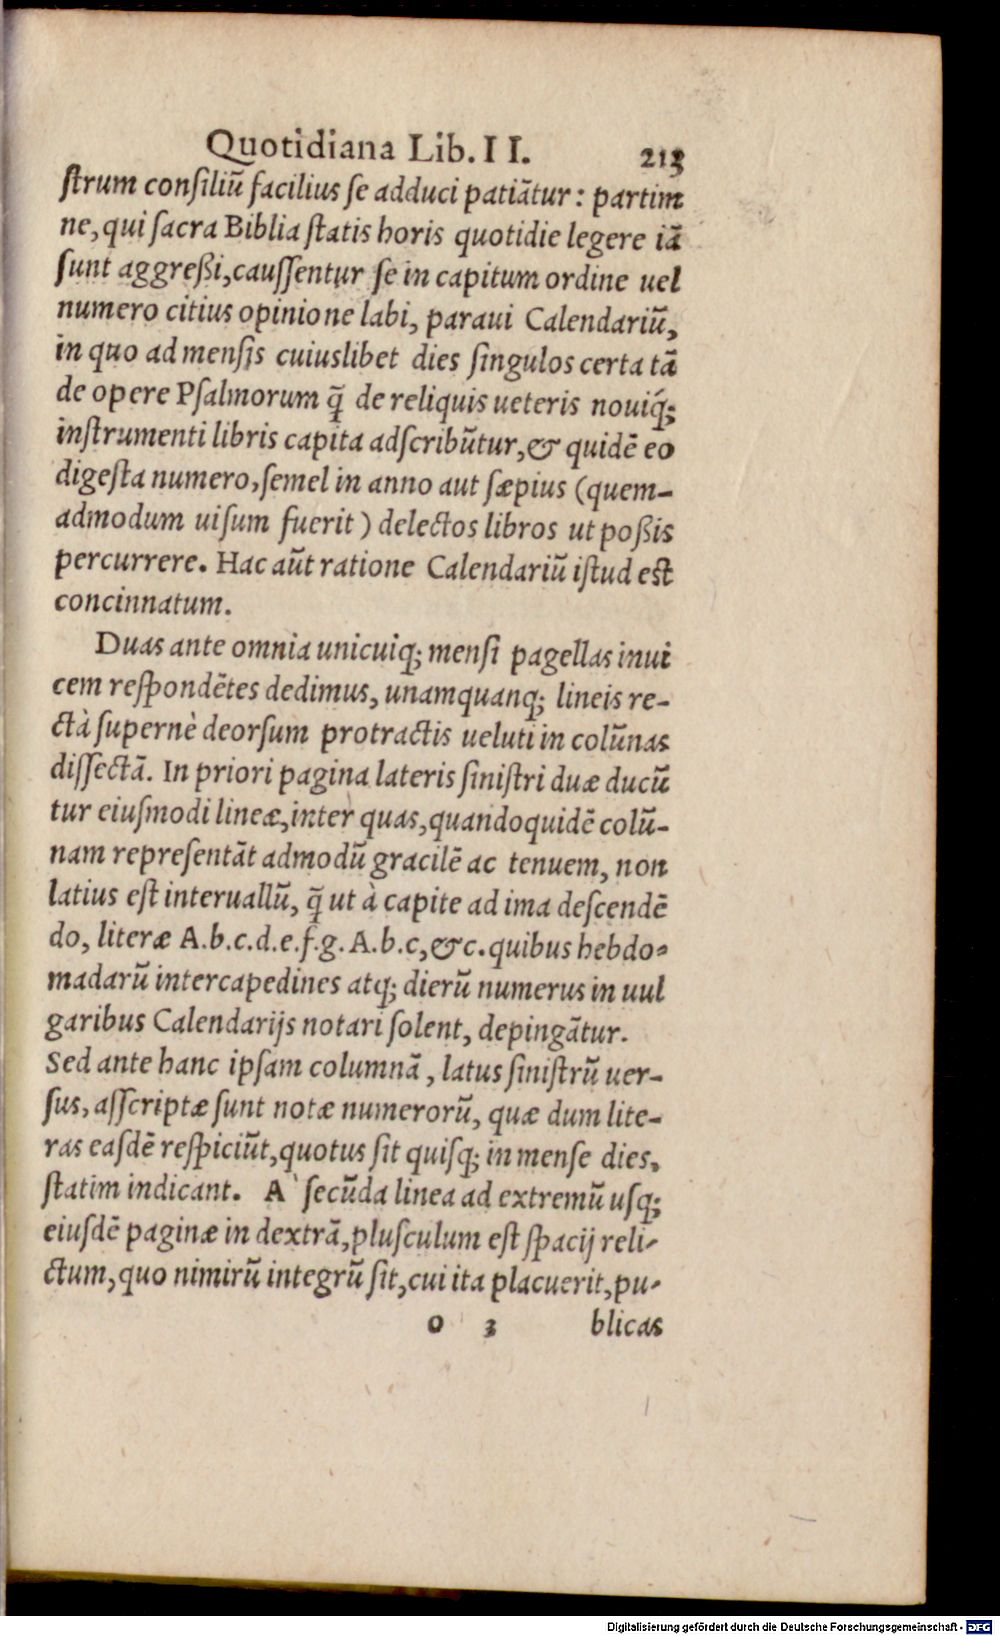 Quotidiana Lib. II. 213
ſtrum conſiliũ facilius ſe adduci patiãtur: partim
ne, qui ſacra Biblia ſtatis horis quotidie legere iã
ſunt aggreßi, cauſſentur ſe in capitum ordine uel
numero citius opinione labi, paraui Calendariũ,
in quo ad menſis cuiuslibet dies ſingulos certa tã
de opere Pſalmorum q̃ de reliquis ueteris nouiq́;
inſtrumenti libris capita adſcribũtur, & quidẽ eo
digeſta numero, ſemel in anno aut ſæpius (quem-
admodum uiſum fuerit) delectos libros ut poßis
percurrere. Hac aũt ratione Calendariũ iſtud eſt
concinnatum.
Duas ante omnia unicuiq; menſi pagellas inui
cem reſpondẽtes dedimus, unamquanq; lineis re-
ctà ſupernè deorſum protractis ueluti in colũnas
diſſectã. In priori pagina lateris ſiniſtri duæ ducũ
tur eiuſmodi lineæ, inter quas, quandoquidẽ colũ-
nam repreſentãt admodũ gracilẽ ac tenuem, non
latius eſt interuallũ, q̃ ut à capite ad ima deſcendẽ
do, literæ A.b.c.d.e.f.g. A.b.c, &c. quibus hebdo-
madarũ intercapedines atq; dierũ numerus in uul
garibus Calendarijs notari ſolent, depingãtur.
Sed ante hanc ipſam columnã, latus ſiniſtrũ uer-
ſus, aſſcriptæ ſunt notæ numerorũ, quæ dum lite-
ras eaſdẽ reſpiciũt, quotus ſit quiſq; in menſe dies,
ſtatim indicant. A` ſecũda linea ad extremũ uſq;
eiuſdẽ paginæ in dextrã, pluſculum eſt ſpacij reli-
ctum, quo nimirũ integrũ ſit, cui ita placuerit, pu-
o 3 blicas
Digitalisierung gefördert durch die Deutsche Forschungsgemeinschaft - DFG